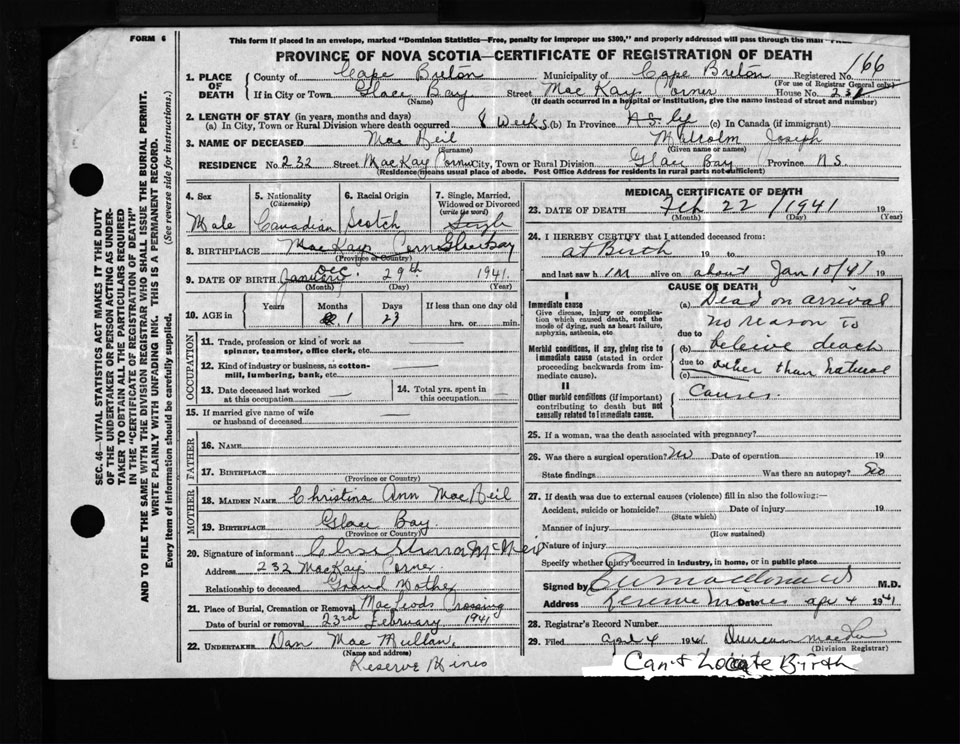 FORM 6
This form if placed in an envelope, marked "Dominion Statistics—Free, penalty for improper use $300," and properly addressed will pass through the mail FREE
PROVINCE OF NOVA SCOTIA—CERTIFICATE OF REGISTRATION OF DEATH
166
1. PLACE OF DEATH
County of Cape Breton Municipality of Cape Breton Registered No.
(For use of Registrar General only)
If in City or Town Glace Bay Street MacKay Corner House No. 232
(Name) (If death occurred in a hospital or institution, give the name instead of street and number)
2. LENGTH OF STAY (in years, months and days)
(a) In City, Town or Rural Division where death occurred 8 Weeks (b) In Province (c) In Canada (if immigrant)
3. NAME OF DECEASED MacNeil Malcolm Joseph
(Surname) (Given name or names)
RESIDENCE No. 232 Street MacKay Corner City, Town or Rural Division Glace Bay Province N.S.
(Residence means usual place of abode. Post Office Address for residents in rural parts not sufficient)
4. Sex
Male
5. Nationality (Citizenship)
Canadian
6. Racial Origin
Scotch
7. Single, Married, Widowed or Divorced (write the word)
8. BIRTHPLACE MacKays Corner Glace Bay
(Province or Country)
9. DATE OF BIRTH January Dec. 29th 1941
(Month) (Day) (Year)
10. AGE in
Years
Months 1
Days 23
If less than one day old
hrs. or min.
OCCUPATION
11. Trade, profession or kind of work as spinner, teamster, office clerk, etc.
12. Kind of industry or business, as cotton-mill, lumbering, bank, etc.
13. Date deceased last worked at this occupation
14. Total yrs. spent in this occupation
15. If married give name of wife or husband of deceased
FATHER
16. NAME
17. BIRTHPLACE
(Province or Country)
MOTHER
18. MAIDEN NAME Christina Ann MacNeil
19. BIRTHPLACE Glace Bay
(Province or Country)
20. Signature of informant McNeil
Address 232 MacKays Corner
Relationship to deceased Grand Mother
21. Place of Burial, Cremation or Removal MacLeods Crossing
Date of burial or removal 23rd February 1941
22. UNDERTAKER Dan MacMullan,
(Name and address)
Reserve Mines
MEDICAL CERTIFICATE OF DEATH
23. DATE OF DEATH Feb 22/1941 19
(Month) (Day) (Year)
24. I HEREBY CERTIFY that I attended deceased from:
at Birth 19 to 19
and last saw h im alive on about Jan 10/41 19
CAUSE OF DEATH
I
Immediate cause
Give disease, injury or complication which caused death, not the mode of dying, such as heart failure, asphyxia, asthenia, etc.
(a) Dead on arrival
no reason to
due to
Morbid conditions, if any, giving rise to immediate cause (stated in order proceeding backwards from immediate cause).
(b) beleive death
due to
(c) other than Natural
II
Other morbid conditions (if important) contributing to death but not causally related to immediate cause.
Causes.
25. If a woman, was the death associated with pregnancy?
26. Was there a surgical operation? No Date of operation 19
State findings Was there an autopsy?
27. If death was due to external causes (violence) fill in also the following:—
Accident, suicide or homicide? Date of injury 19
(State which)
Manner of injury
(How sustained)
Nature of injury
Specify whether injury occurred in industry, in home, or in public place
Signed by M.D.
Address Reserve Mines Date Apr 4 1941
28. Registrar's Record Number
29. Filed April 4 1941 Duncan
(Division Registrar)
Can't Locate Birth
SEC. 46—VITAL STATISTICS ACT MAKES IT THE DUTY
OF THE UNDERTAKER OR PERSON ACTING AS UNDERTAKER TO OBTAIN ALL THE PARTICULARS REQUIRED
IN THE "CERTIFICATE OF REGISTRATION OF DEATH"
AND TO FILE THE SAME WITH THE DIVISION REGISTRAR WHO SHALL ISSUE THE BURIAL PERMIT.
WRITE PLAINLY WITH UNFADING INK. THIS IS A PERMANENT RECORD.
Every item of Information should be carefully supplied. (See reverse side for instructions.)